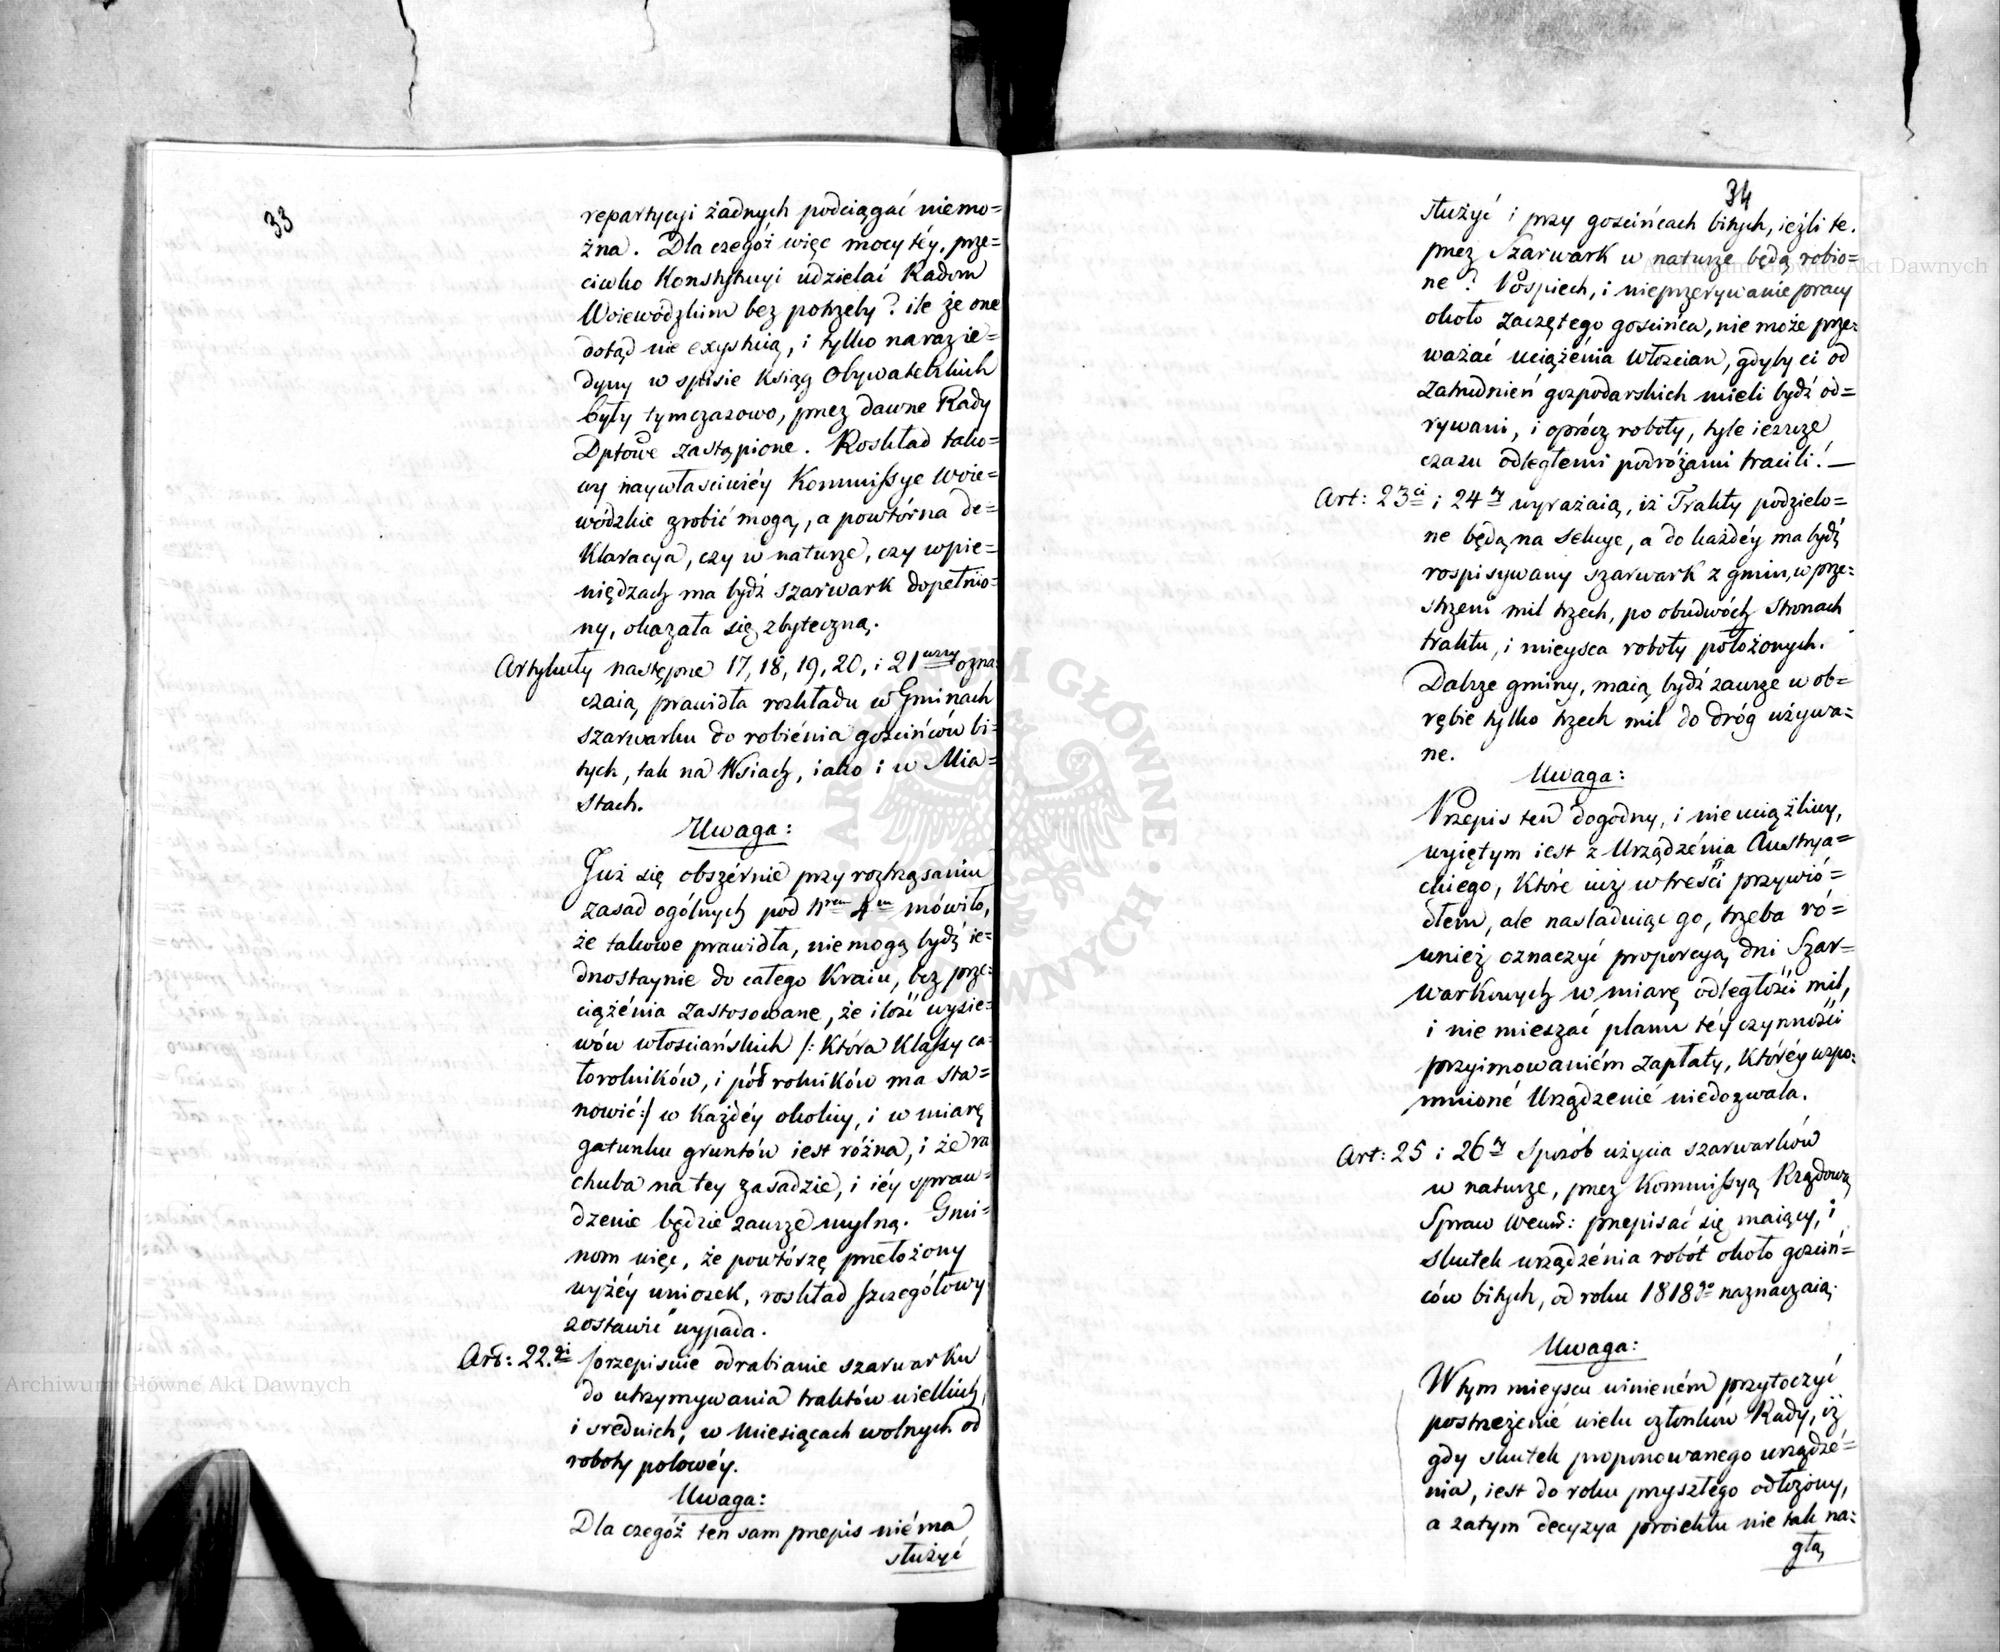 33
repartycyi żadnych podciągać niemo=
żna. Dla czegóż więc mocy téy, prze=
ciwko Konstytucyi udzielać Radom
Woiewódzkim bez potrzeby? ile że one
dotąd nie exystuią, i tylko na raz ie=
dyny w spisie ksiąg Obywatelskich
były tymczasowo, przez dawne Rady
Dptowe zastąpione. Roskład tako=
wy naywłaściwiéy Kommissye Woie=
wódzkie zrobić mogą, a powtórna de=
klaracya, czy w naturze, czy w pie=
niędzach ma bydź szarwark dopełnio=
ny, okazała się zbyteczną.
Artykuły następne 17, 18, 19, 20, i 21wszy ozna=
czaią prawidła rozkładu w Gminach
szarwarku do robiénia gościńców bi=
tych, tak na Wsiach, iako i w Mia=
stach.
Uwaga:
Już się obszérnie przy roztrząsaniu
zasad ogólnych pod Nrem 4m mówiło,
że takowe prawidła, nie mogą bydź ie=
dnostaynie do całego Kraiu, bez prze=
ciążénia zastosowane, że ilość wysie=
wów włościańskich /: która klassy ca=
łorolników, i pół rolników ma sta=
nowić:/ w każdéy okolicy, i w miarę
gatunku gruntów iest różna, i że ra
chuba na tey zasadzie, i iéy spraw=
dzenie będzie zawsze mylną. Gmi=
nom więc, że powtórzę przełożony
wyżéy wniosek, roskład szczegółowy
zostawić wypada.
Art: 22.gi przepisuie odrabianie szarwarku
do utrzymywania traktów wielkich,
i srednich, w miesiącach wolnych od
roboty polowéy.
Uwaga:
Dla czegóż ten sam przepis niéma
służyć
34
służyć i przy gościńcach bitych, ieżli te
przez Szarwark w naturze będą robio=
ne? Pośpiech, i nieprzerywanie pracy
około zaczętego gościńca, nie może prze=
ważać uciążénia Włościan, gdyby ci od
zatrudnień gospodarskich mieli bydź od=
rywani, i oprócz roboty, tyle ieszcze
czasu odległemi podróżami tracili! —
Art: 23ci i 24ty wyrażaią, iż Trakty podzielo=
ne będą na sekcye, a do każdéy ma bydź
rospisywany szarwark z gmin, w prze=
strzeni mil trzech, po obudwóch stronach
traktu, i mieysca roboty położonych.
Dalsze gminy, maią bydź zawsze w ob=
rębie tylko trzech mil do dróg używa=
ne.
Uwaga:
Przepis ten dogodny, i nie uciążliwy,
wyiętym iest z Urządzénia Austrya=
ckiego, które iuż w treści przywió=
dłem, ale nasladuiąc go, trzeba ró=
wnież oznaczyć proporcyą dni Szar=
warkowych w miarę odległości mil,
i nie mieszać planu téy czynności
przyimowaniém zapłaty, któréy wspo=
mnioné Urządzenié niedozwala.
Art: 25 i 26ty Sposób użycia szarwarków
w naturze, przez Kommissyą Rządową
Spraw Wewn: przepisać się maiący, i
skutek urządzénia robót około gościń=
ców bitych, od roku 1818go naznaczaią.
Uwaga:
W tym mieyscu winieném przytoczyć
postrzeżenié wielu członków Rady, iż
gdy skutek proponowanego urządzé=
nia, iest do roku przyszłego odłożony,
a zatym decyzya proiektu nie tak na=
głą